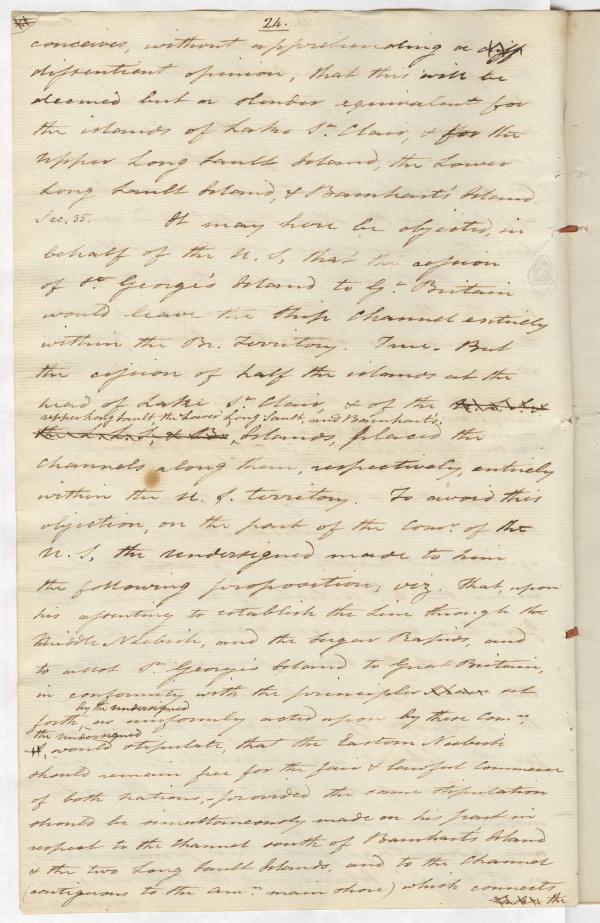 24.
conceives, without apprehending a diff
dissentient opinion, that this will be
deemed but a slender equivalent for
the islands of Lake St. Clair, & for the
Upper Long Sault Island, the Lower
Long Sault Island, & Barnhart's Island.
Sec. 35. It may here be objected, in
behalf of the U. S, that the cession
of St. George's Island to Gt. Britain
would leave the Ship Channel entirely
within the Br. Territory. True. But
the cession of half the islands at the
head of Lake St. Clair, & of the
upper Long Sault, the Lower Long Sault, and Barnhart's
Islands, placed the
Channels along them, respectively, entirely
within the U. S. territory. To avoid this
objection, on the part of the Comr. of the
U. S, the undersigned made to him
the following proposition; viz. That, upon
his assenting to establish the Line through the
Middle Neebish, and the Sugar Rapids, and
to allot St. George's Island to Great Britain,
in conformity with the principles set
by the undersigned
forth, as uniformly acted upon by these Comrs,
the undersigned
would stipulate, that the Eastern Neebish
should remain free for the fair & lawful Commerce
of both nations, provided the same stipulation
should be simultaneously made on his part in
respect to the Channel south of Barnhart's Island
& the two Long Sault Islands, and to the Channel
(contiguous to the Amn. main shore) which connects
the